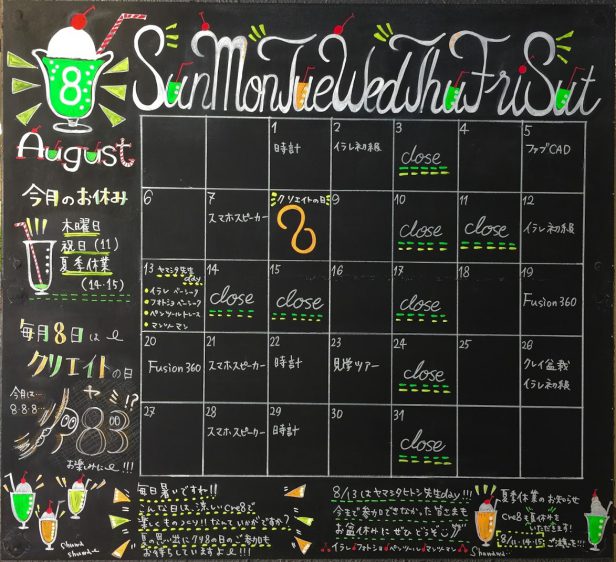 8
August
Sun Mon Tue Wed Thu Fri Sat
1 2 3 4 5
時計 イラレ初級 close ファブCAD
6 7 クリエイトの日 9 10 11 12
スマホスピーカー 8 close close イラレ初級
13 ヤマシタ先生day 14 15 16 17 18 19
イラレ ベーシック
フォトショ ベーシック
ペンツールトレース
マンツーマン
close close close Fusion360
20 21 22 23 24 25 26
Fusion360 スマホスピーカー 時計 見学ツアー close クレイ盆栽
イラレ初級
27 28 29 30 31
スマホスピーカー 時計 close
今月のお休み
木曜日
祝日(11)
夏季休業
(14・15)
毎月8日は
クリエイトの日
今月は…
8・8・8…
ヤミ!?
お楽しみに!!!
Shuwa
Shuwa
毎日暑いですね!!
こんな日は、涼しいcre8で
楽しくものづくり!!なんていかがですか?
夏の思い出にクリ8の日のご参加も
お待ちしていますよ!!!
8/13はヤマシタヒトシ先生day!!!
今まで参加できなかった皆さまも
お盆休みにぜひどうぞ
イラレ フォトショ ペンツール マンツーマン
夏季休業のお知らせ
cre8も夏休みを
いただきます!
8/11・14・15
Shuwawa…